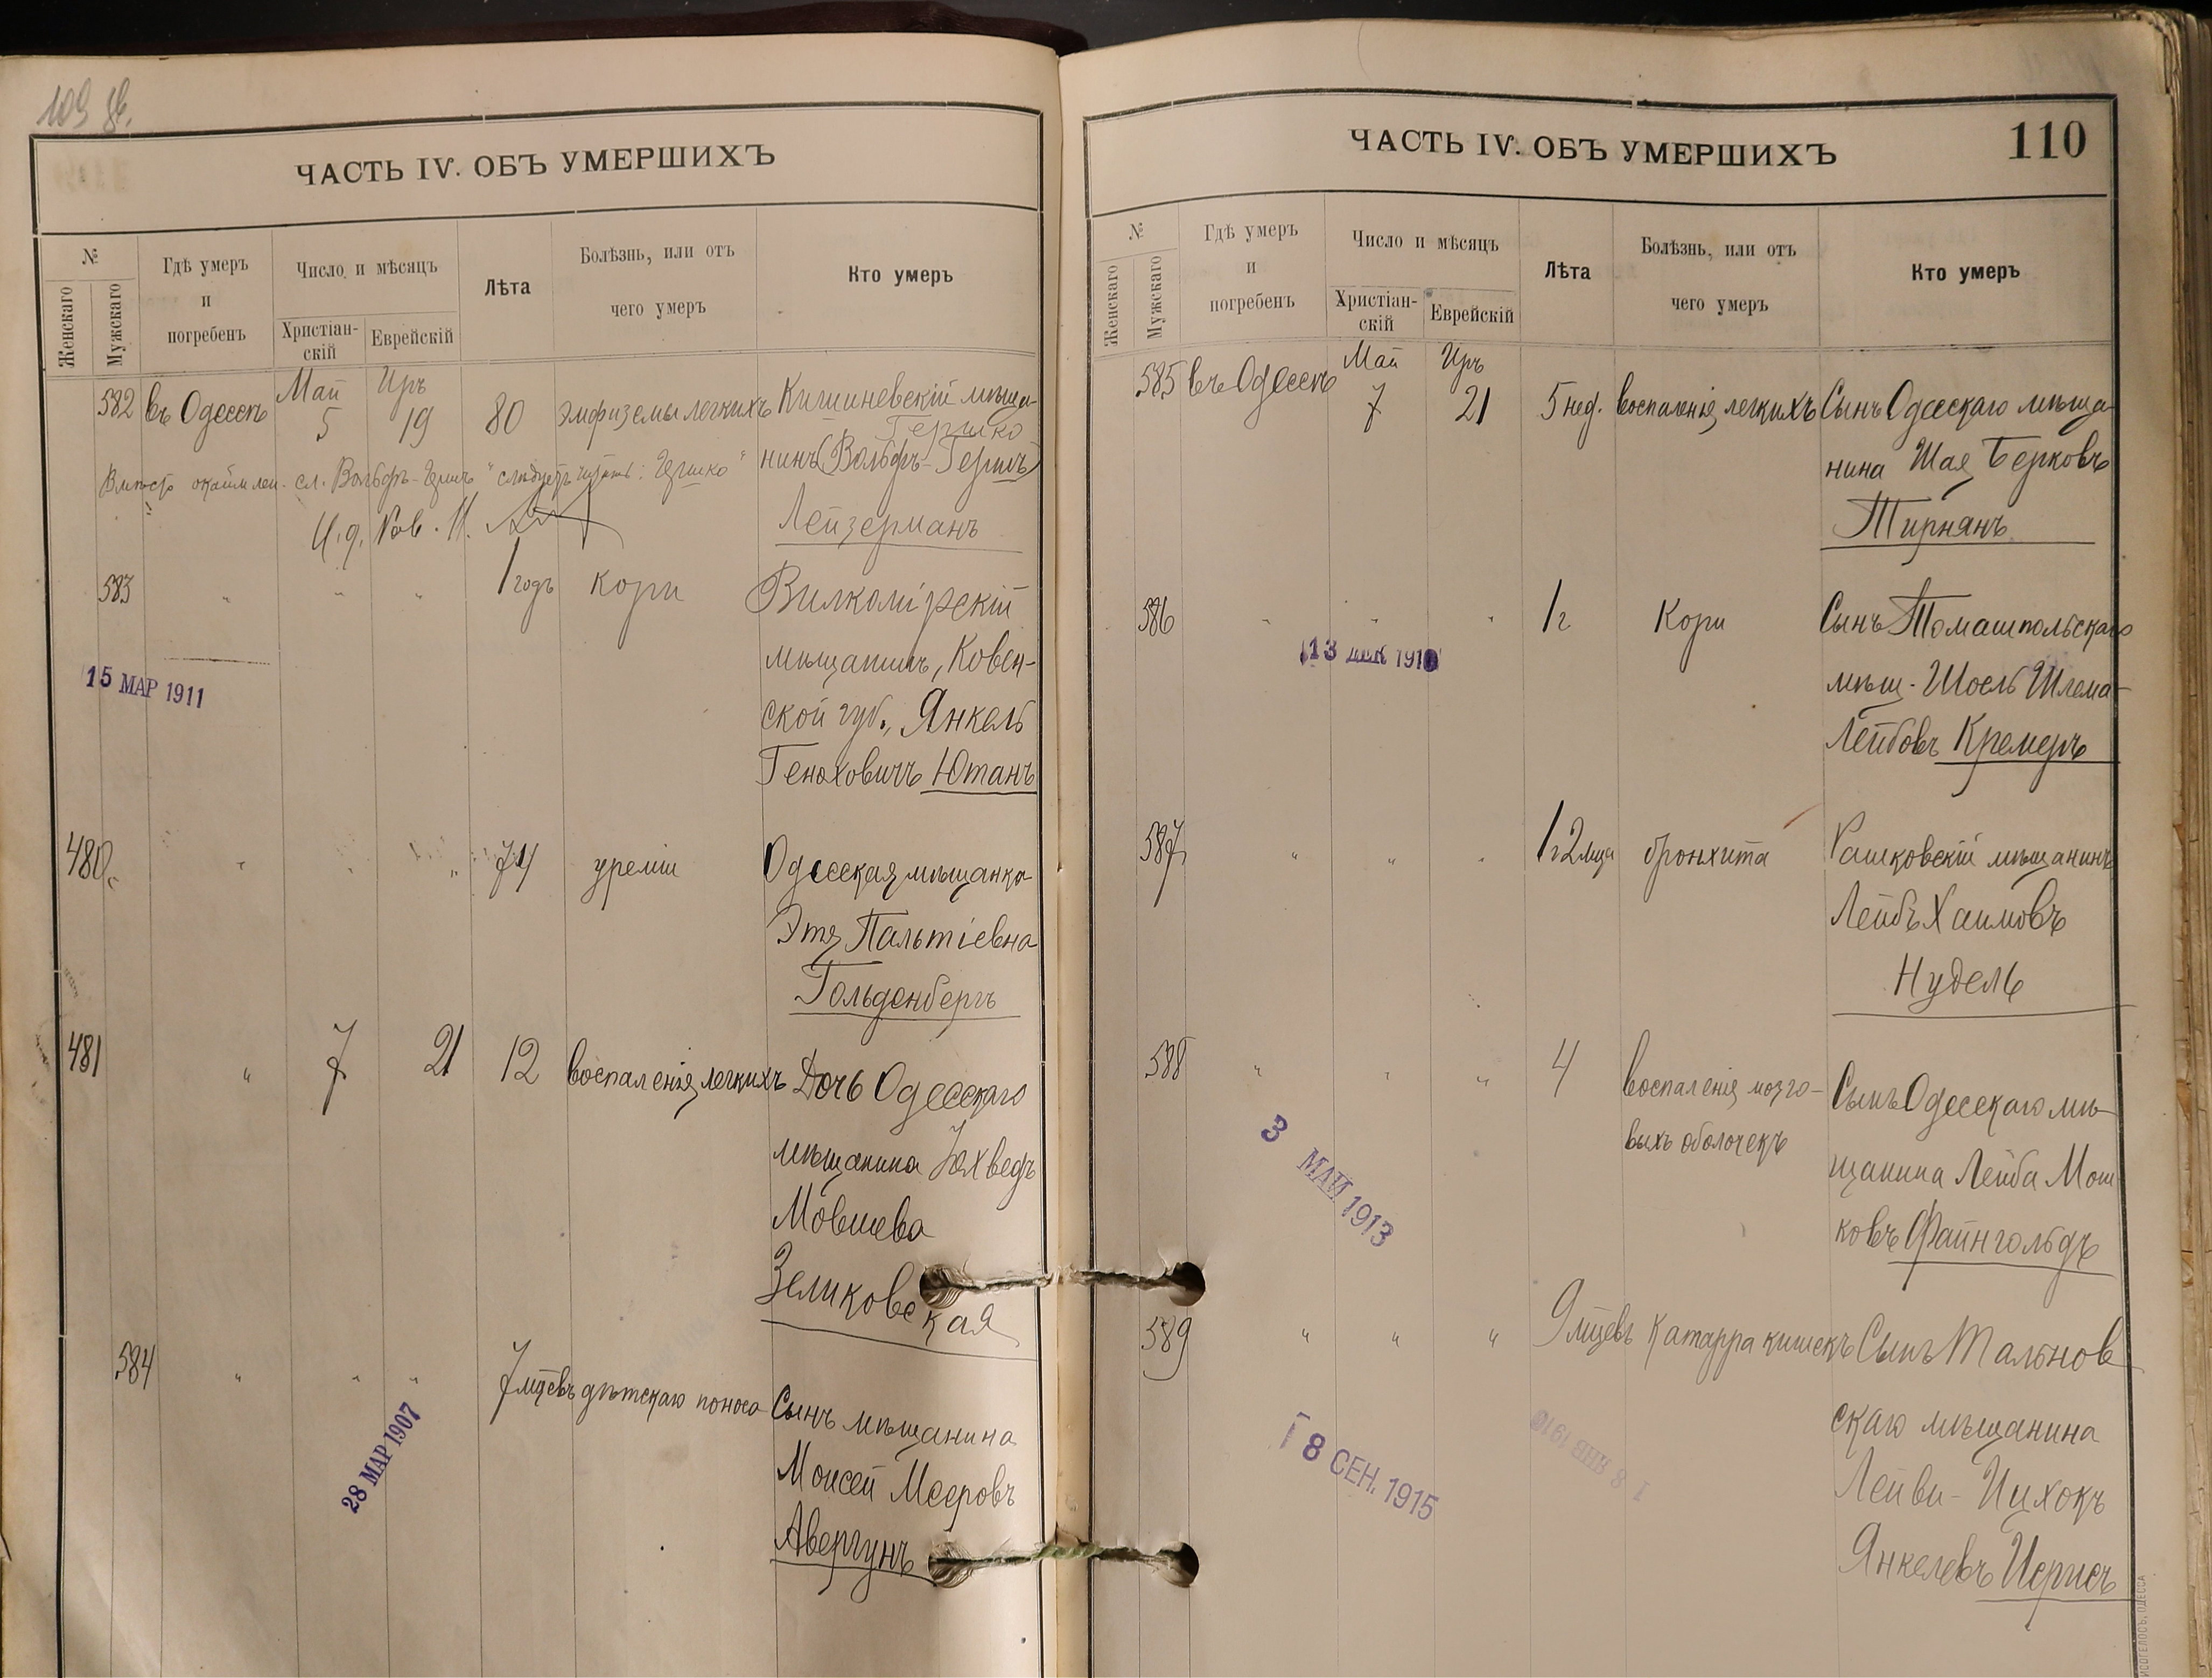 109 об.
ЧАСТЬ IV. ОБЪ УМЕРШИХЪ
№
Женскаго
Мужскаго
Гдѣ умеръ
и
погребенъ
Число и мѣсяцъ
Христіан-
скій
Еврейскій
Лѣта
Болѣзнь, или отъ
чего умеръ
Кто умеръ
582 въ Одессѣ Май 5 Иръ 19 80 эмфиземы легкихъ Кишиневскій мѣща-
Гершко
нинъ (Вольфъ-Гершъ)
Лейзерманъ
Вмѣсто окаймлен. сл. Вольфъ-Гершъ "слѣдуетъ читать: Гершко"
И. д. Рав.
583 " " " 1 годъ кори Вилкомірскій
мѣщанинъ, Ковен-
ской губ., Янкель
Геноховичъ Ютанъ
15 МАР 1911
480 " " " 74 уреміи Одесская мѣщанка
Этя Пальтіевна
Гольденбергъ
481 " 7 21 12 воспаленія легкихъ Дочь Одесскаго
мѣщанина Юхведъ
Мовшева
Зеликовская
584 " " " 7 мцевъ дѣтскаго поноса Сынъ мѣщанина
Моисей Мееровъ
Авергунъ
28 МАР 1907
ЧАСТЬ IV. ОБЪ УМЕРШИХЪ
110
№
Женскаго
Мужскаго
Гдѣ умеръ
и
погребенъ
Число и мѣсяцъ
Христіан-
скій
Еврейскій
Лѣта
Болѣзнь, или отъ
чего умеръ
Кто умеръ
585 въ Одессѣ Май 7 Иръ 21 5 нед. воспаленія легкихъ Сынъ Одесскаго мѣща-
нина Шая Берковъ
Тирнянъ
586 " " " 1 г Кори Сынъ Томашпольскаго
мѣщ. Шоель Шлема-
Лейбовъ Кремеръ
13 ДЕК 191
587 " " " 1 г 2 мца бронхита Рашковскій мѣщанинъ
Лейбъ Хаимовъ
Нудель
588 " " " 4 воспаленія мозго-
выхъ оболочекъ
Сынъ Одесскаго мѣ-
щанина Лейба Мош-
ковъ Файнгольдъ
3 МАЙ 1913
589 " " " 9 мцевъ Катарра кишекъ Сынъ Тальнов
скаго мѣщанина
Лейви-Ицхокъ
Янкелевъ Черисъ
18 СЕН. 1915